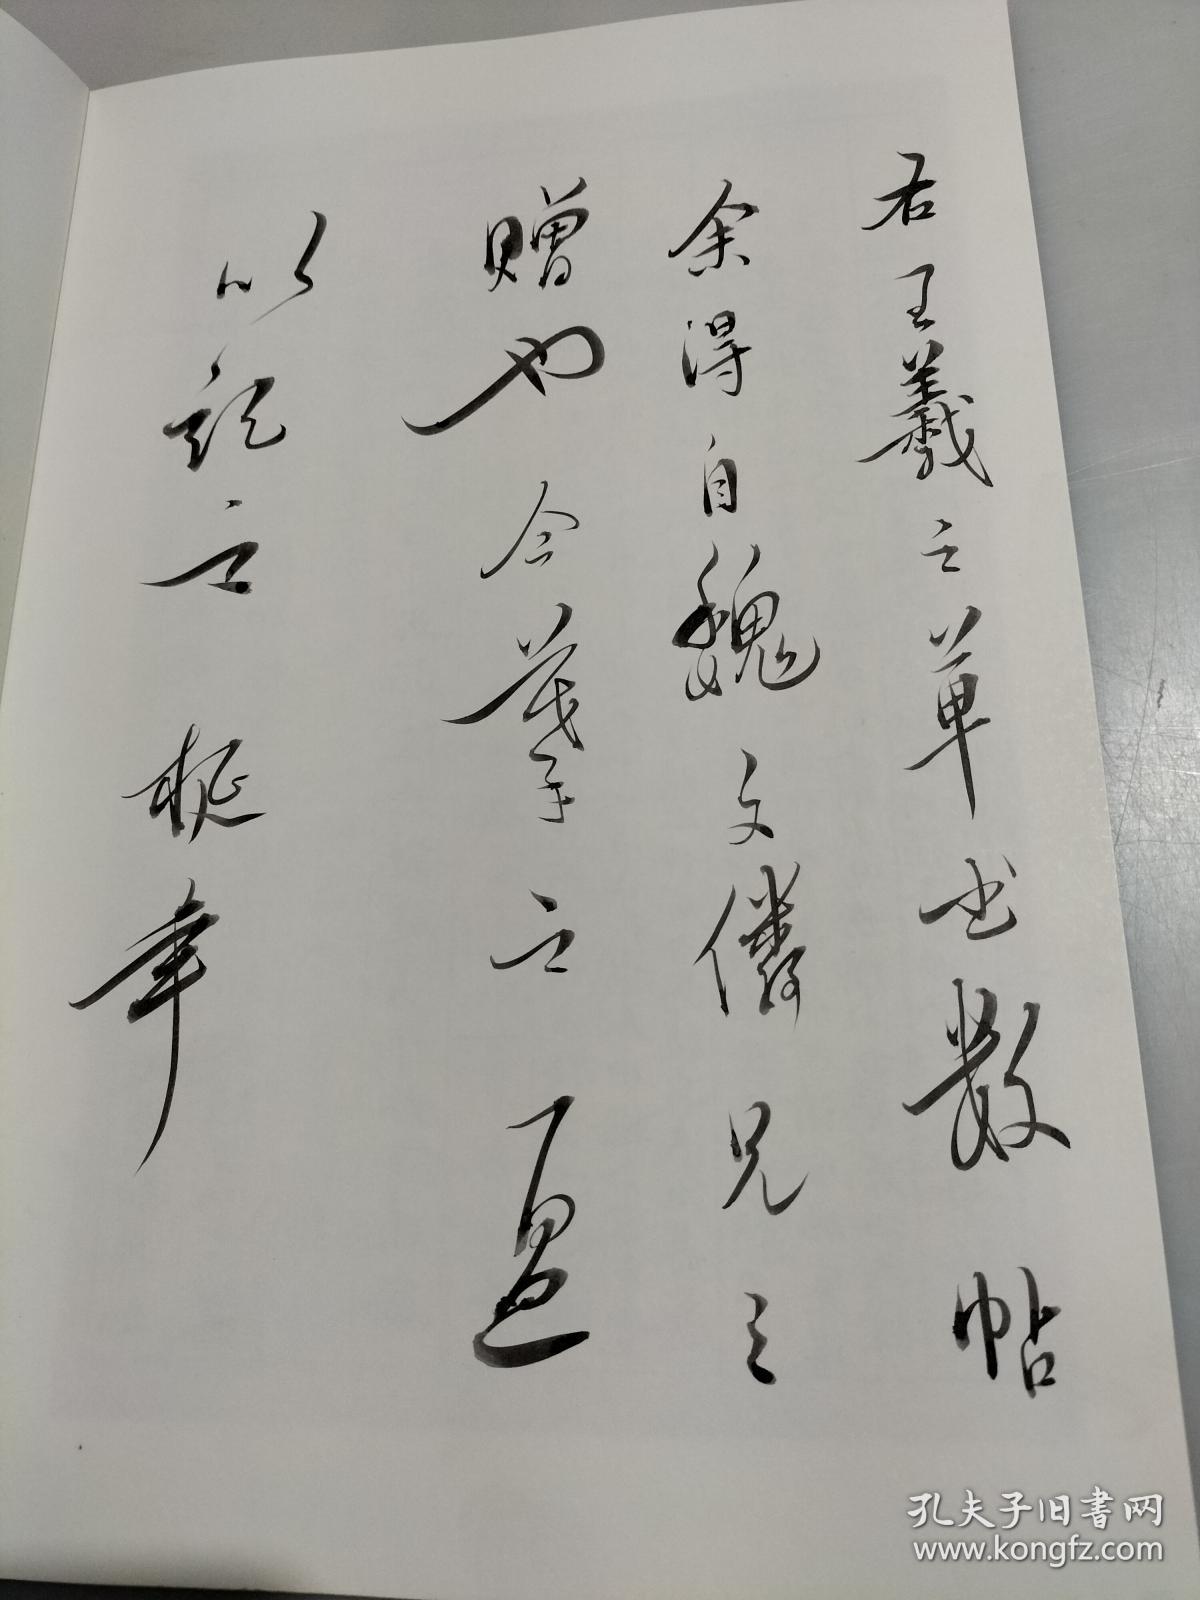 右王羲之草书数帖
余得自魏文僯兄之
赠也今摹之
以记之
孔夫子旧书网
www.kongfz.com